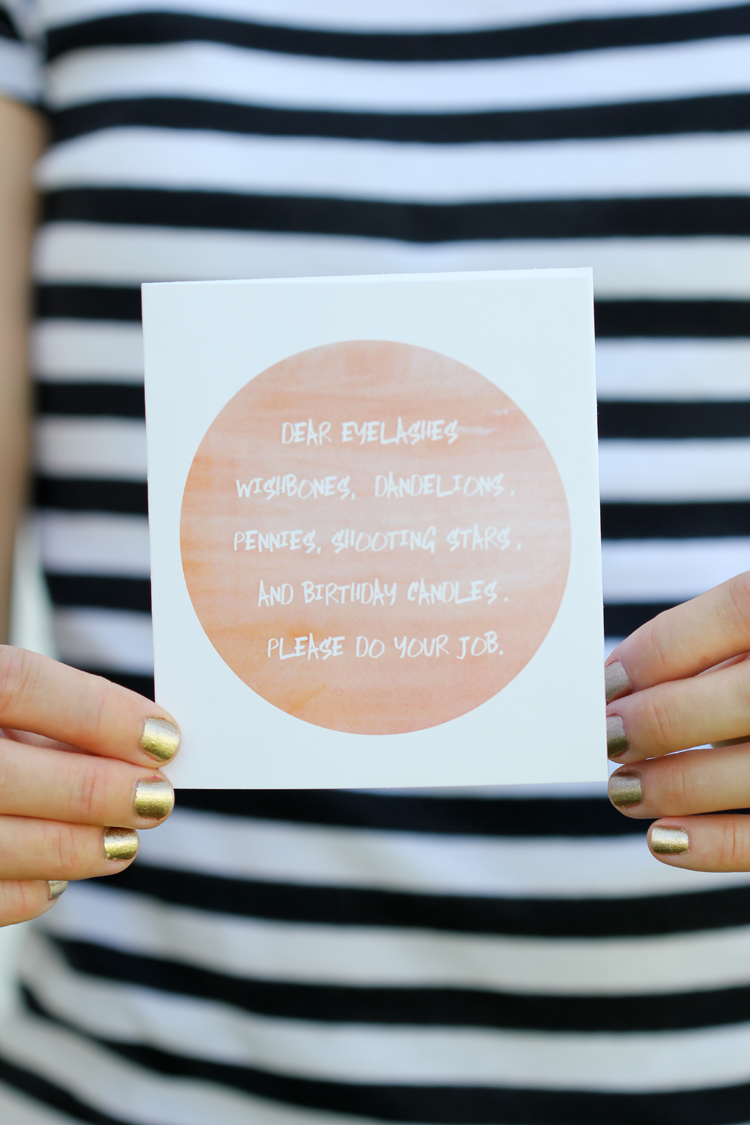 DEAR EYELASHES
WISHBONES, DANDELIONS,
PENNIES, SHOOTING STARS,
AND BIRTHDAY CANDLES.
PLEASE DO YOUR JOB.